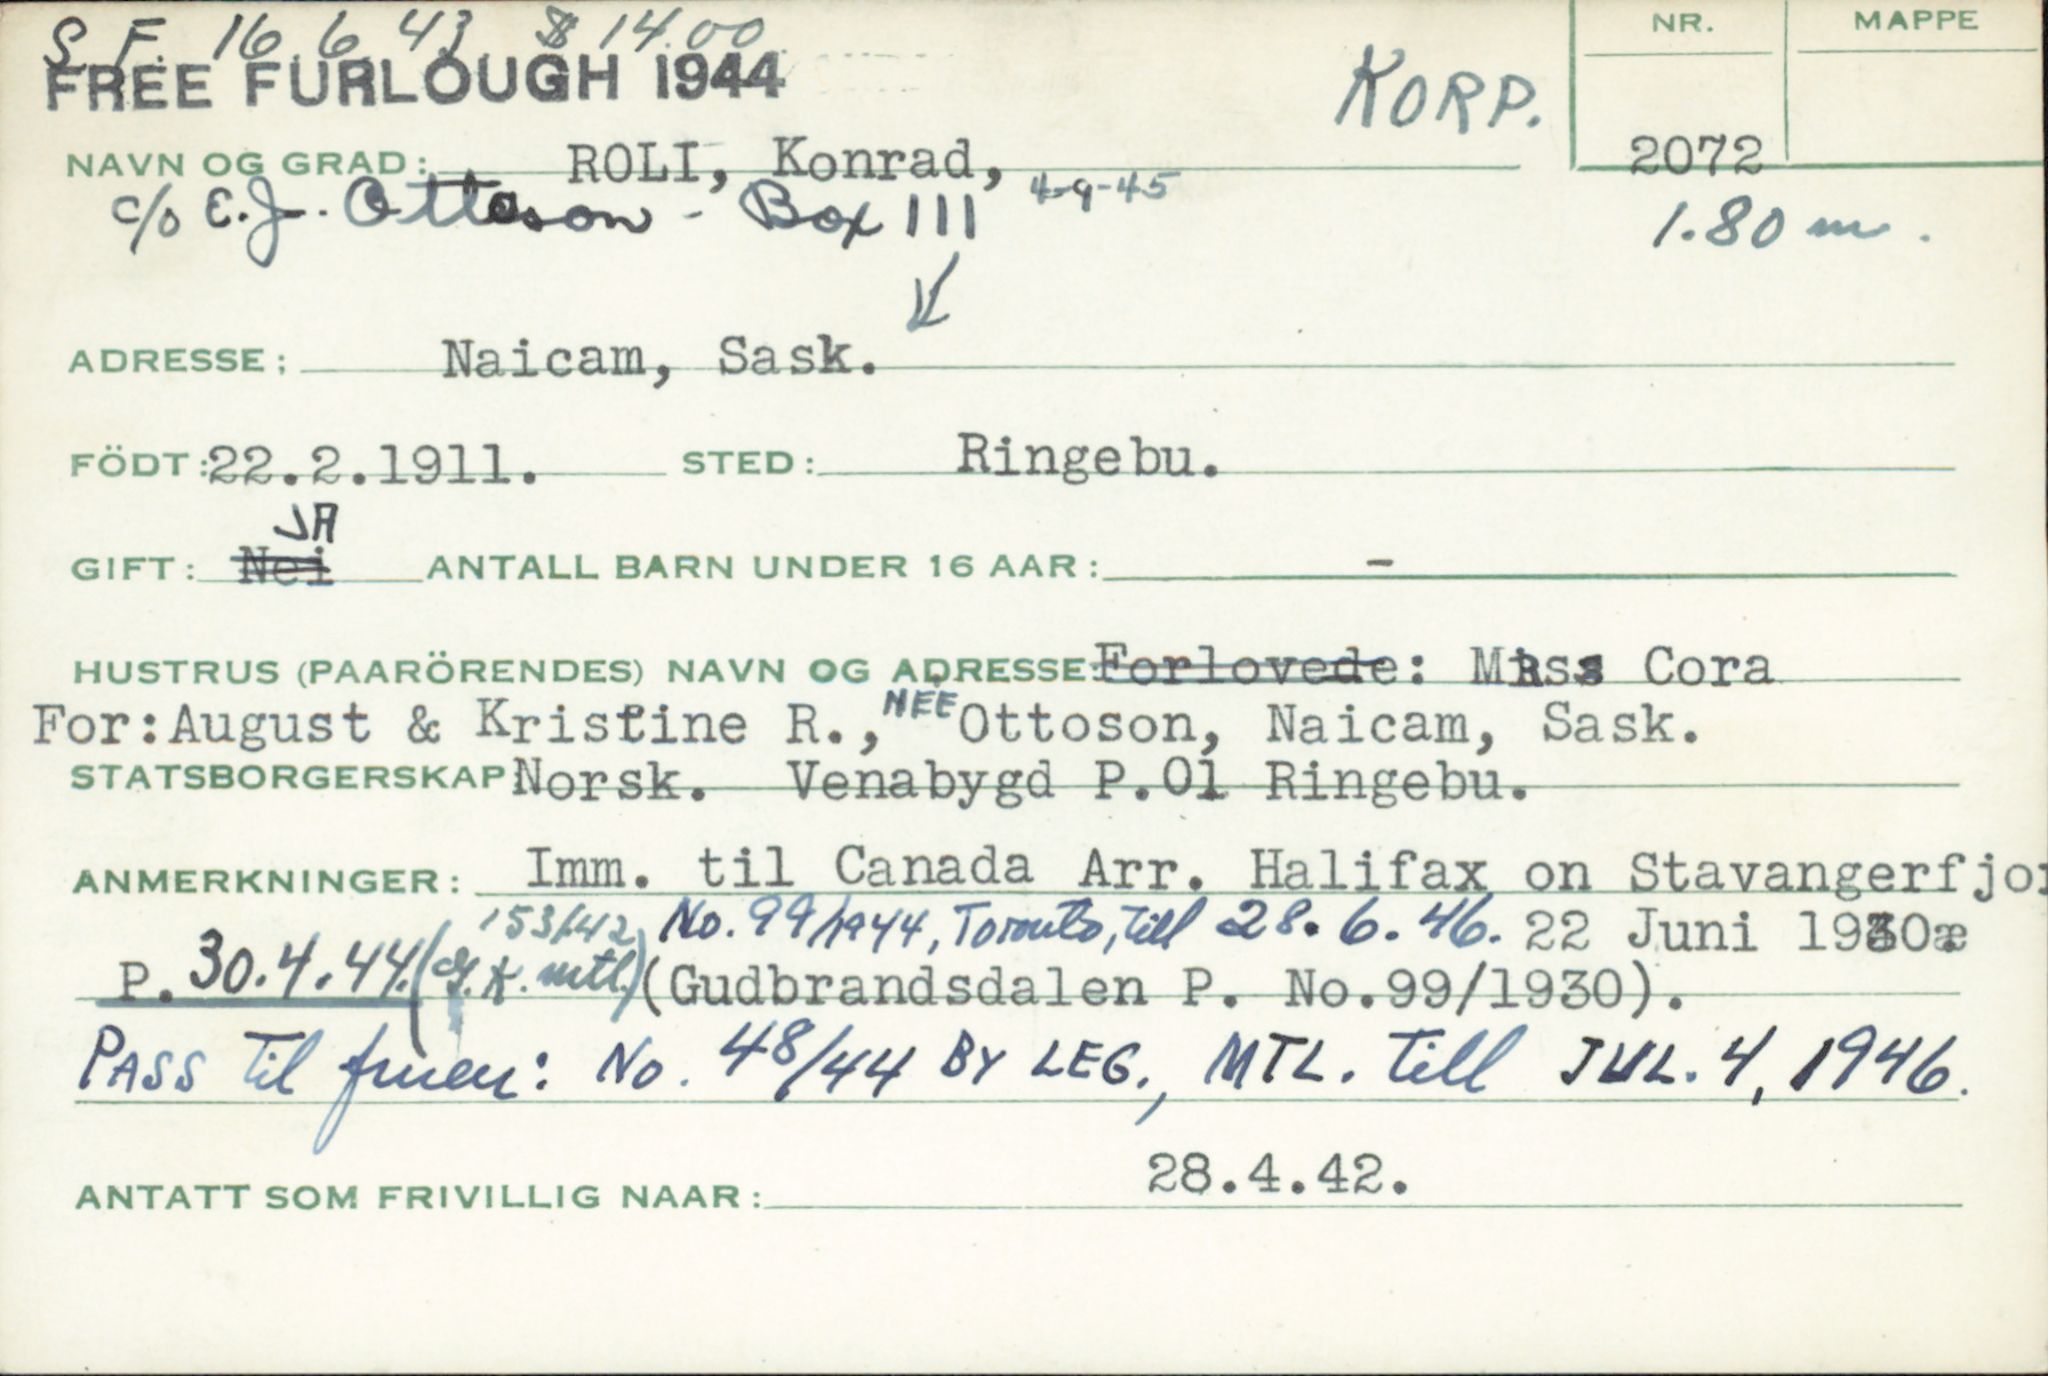 S. F. 16 6 43 $14.00
FREE FURLOUGH 1944
KORP.
NR. MAPPE
NAVN OG GRAD: ROLI, Konrad, 2072
c/o E.J. Ottoson - Box 111 4-9-45 1.80 m.
ADRESSE: Naicam, Sask.
FÖDT: 22.2.1911. STED: Ringebu.
JA
GIFT: Nei ANTALL BARN UNDER 16 AAR: -
HUSTRUS (PAARÖRENDES) NAVN OG ADRESSE: Forlovede: MRss Cora
For: August & Kristine R., NÉE Ottoson, Naicam, Sask.
STATSBORGERSKAP Norsk. Venabygd P.O1 Ringebu.
ANMERKNINGER: Imm. til Canada Arr. Halifax on Stavangerfjor
153/42 No. 99/1944, Toronto, till 28.6.46. 22 Juni 1930æ
P. 30.4.44. (G.K. mtl.) (Gudbrandsdalen P. No.99/1930).
PASS Til fruen: No. 48/44 BY LEG., MTL. Till JUL. 4, 1946.
ANTATT SOM FRIVILLIG NAAR: 28.4.42.